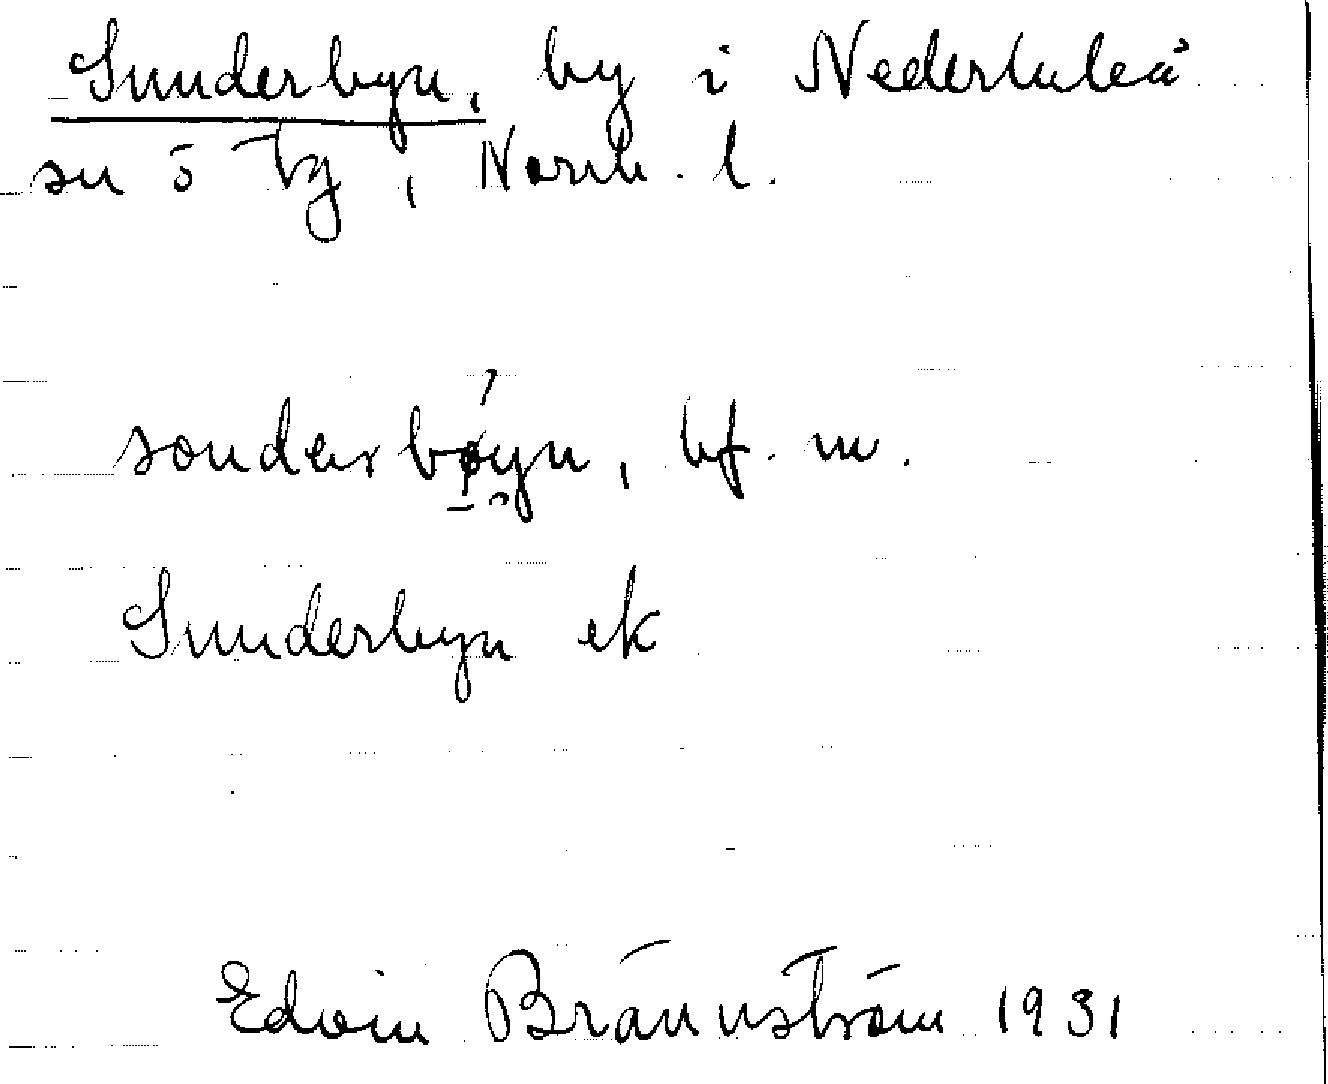 Sunderbyn, by i Nederluleå
sn ö tg, Norrb. l.
sonderbøyn, bf. m.
Sunderbyn ek
Edvin Brännström 1931